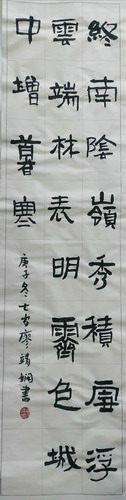 終南陰嶺秀積雪浮
雲端林表明霽色城
中增暮寒
庚子冬七岁廖嫻書